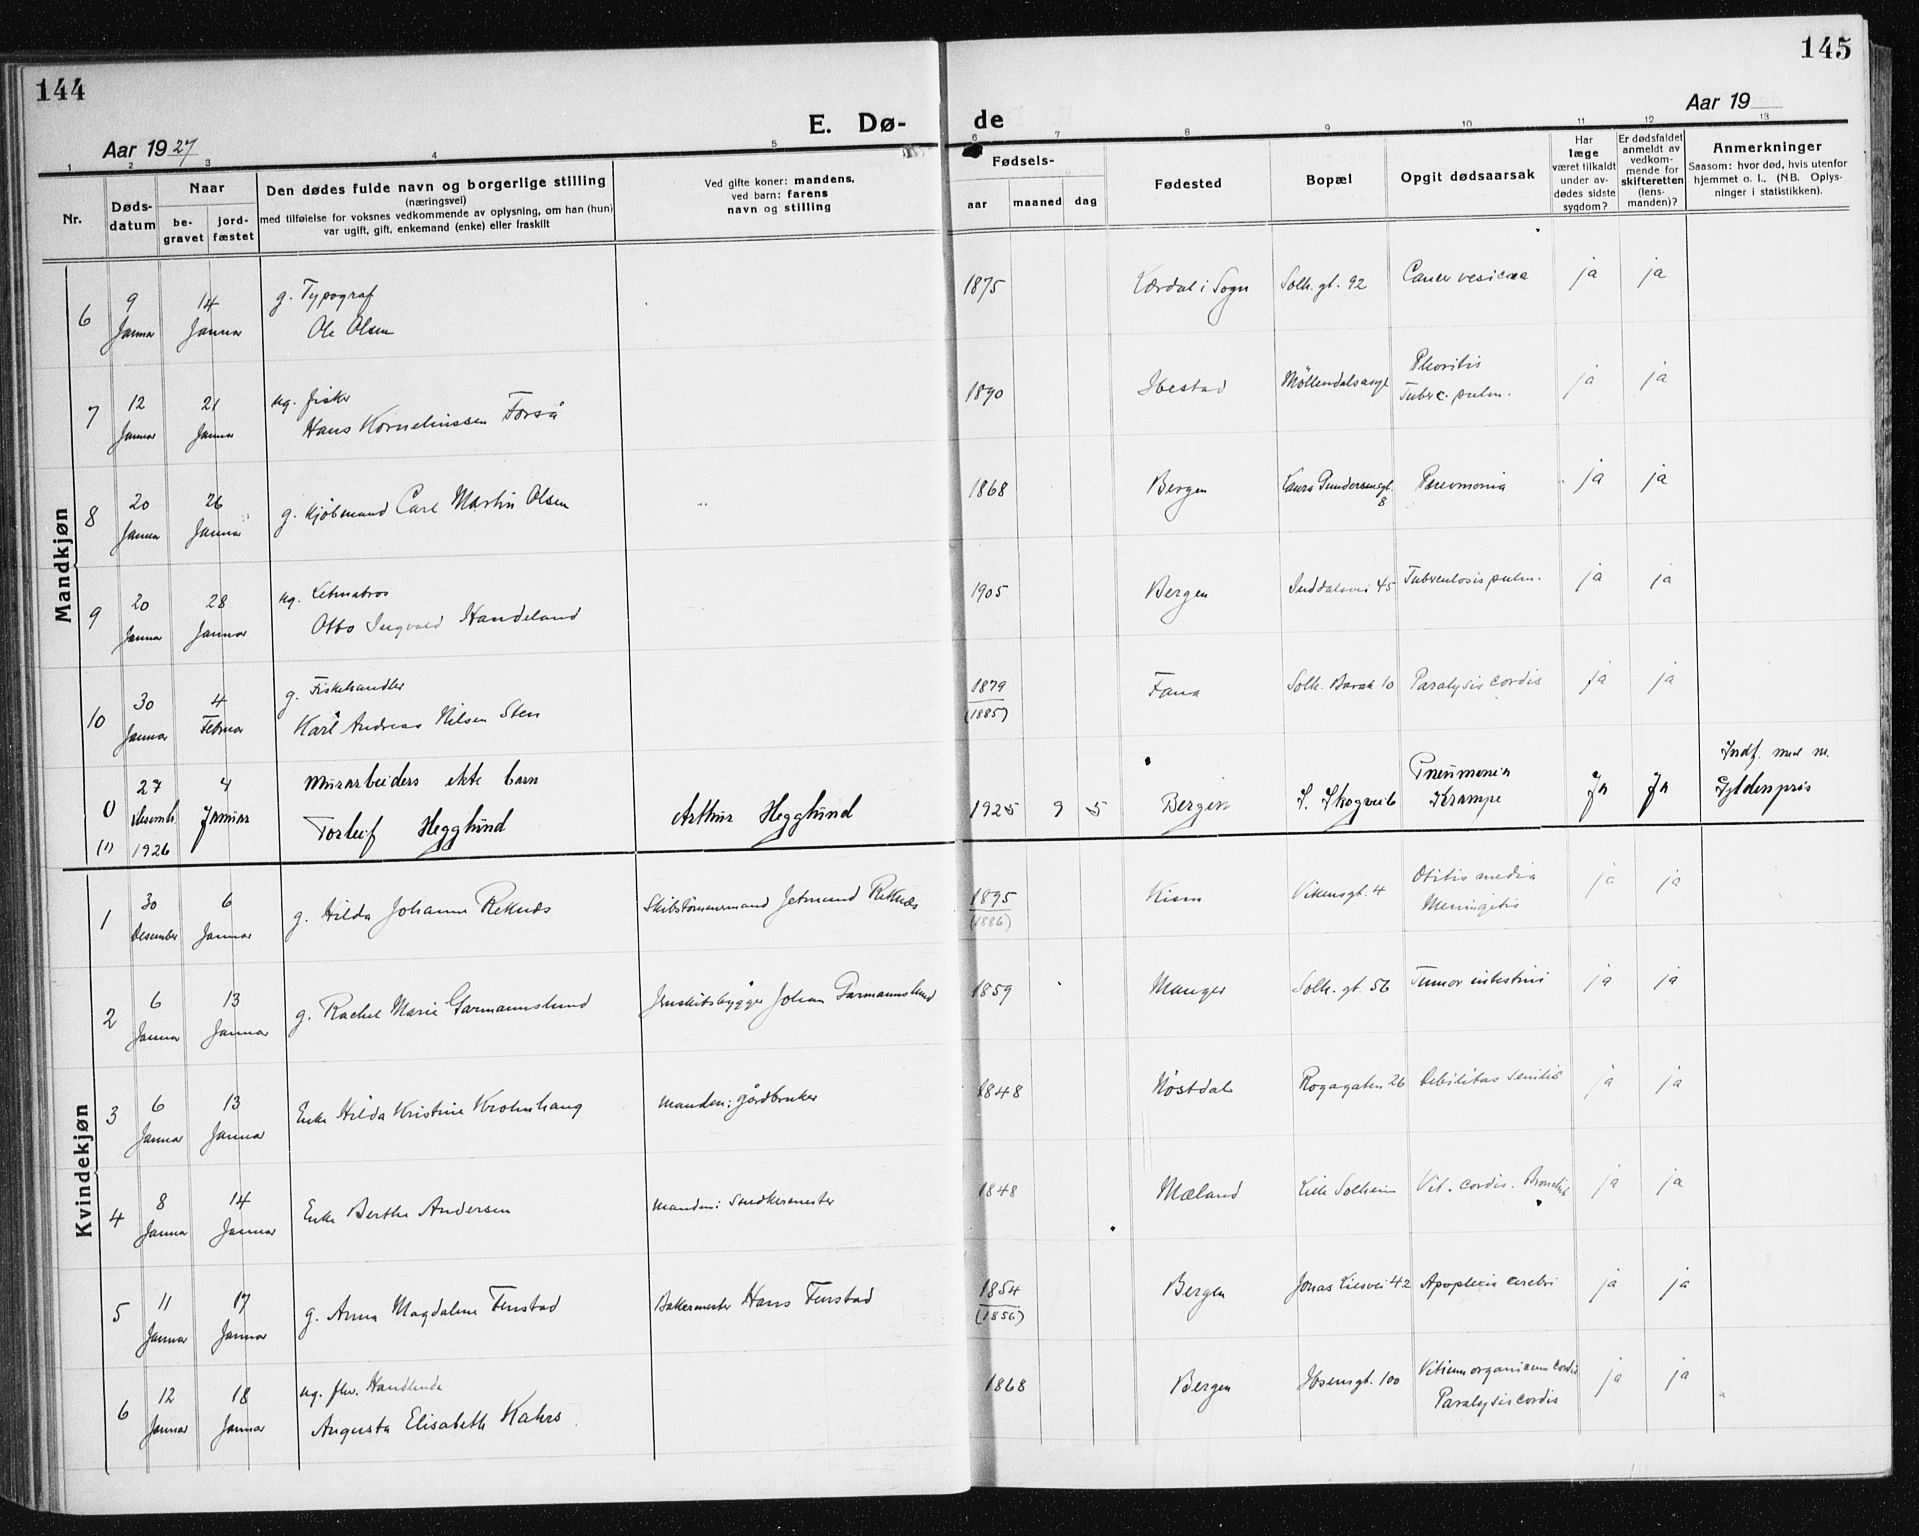 144
145
E. Dø-
de
Aar 1927
Aar 19
1 2 3 4 5 6 7 8 9 10 11 12 13
Nr.
Døds-
datum
Naar
be-
gravet
jord-
fæstet
Den dødes fulde navn og borgerlige stilling
(næringsvei)
med tilføielse for voksnes vedkommende av oplysning, om han (hun)
var ugift, gift, enkemand (enke) eller fraskilt
Ved gifte koner: mandens,
ved barn: farens
navn og stilling
Fødsels-
aar
maaned
dag
Fødested
Bopæl
Opgit dødsaarsak
Har
læge
været tilkaldt
under av-
dødes sidste
sygdom?
Er dødsfaldet
anmeldt av
vedkom-
mende for
skifteretten
(lens-
manden)?
Anmerkninger
Saasom: hvor død, hvis utenfor
hjemmet o. l., (NB. Oplys-
ninger i statistikken).
Mandkjøn
6 9 Januar 14 Januar g. Typograf
Ole Olsen 1875 i Sogn Solh. gt. 92 Cancer vesicæ ja ja
7 12 Januar 21 Januar ug. fisker
Hans Korneliussen Forså 1890 Ibestad Møllendalsasyl Pleuritis
Tuberc. pulm. ja ja
8 20 Januar 26 Januar g. Kjøbmand Carl Martin Olsen 1868 Bergen Laura Gundersensgt. 8 Pneumonia ja ja
9 20 Januar 28 Januar ug. Letmatros
Otto Ingvald Handeland 1905 Bergen Inddalsvei 45 Tuberculosis pulm. ja ja
10 30 Januar 4 Februar g. Fiskehandler
Karl Andreas Nilsen Sten 1879
(1885) Fana Solh. Barak 10 Paralysis cordis ja ja
0
(1) 27 Desemb. 1926 4 Januar Murarbeiders ekte barn
Torleif Hegglund Arthur Hegglund 1925 9 5 Bergen S. Skogvei 6 Pneumonia
Krampe Ja Ja Indf. med m.
Gyldenpris
Kvindekjøn
1 30 Desember 6 Januar g. Hilda Johanne Reknes Skibstømmermand Jetmund Reknes 1895
(1886) Kinn Vikensgt. 4 Otitis media
Meningitis ja ja
2 6 Januar 13 Januar g. Rachel Marie Garmannslund Jernskibsbygger Johan Garmannslund 1859 Manger Solh. gt. 56 Tumor intestini ja ja
3 6 Januar 13 Januar Enke Hilda Kristine Krohnhaug manden: gårdbruker 1848 Nøstdal Rogagaten 26 Debilitas senilis ja ja
4 8 Januar 14 Januar Enke Berthe Andersen manden: Snedkermester 1848 Mæland Lille Solheim Vit. cordis. ja ja
5 11 Januar 17 Januar g. Anna Magdalene Finstad Bakermester Hans Finstad 1854
(1856) Bergen Jonas Liesvei 42 Apoplexia cerebri ja ja
6 12 Januar 18 Januar ug. fhv. Handlende
Augusta Elisabeth Kahrs 1868 Bergen Ibsensgt. 100 Vitium organicum cordis
Paralysis cordis ja ja